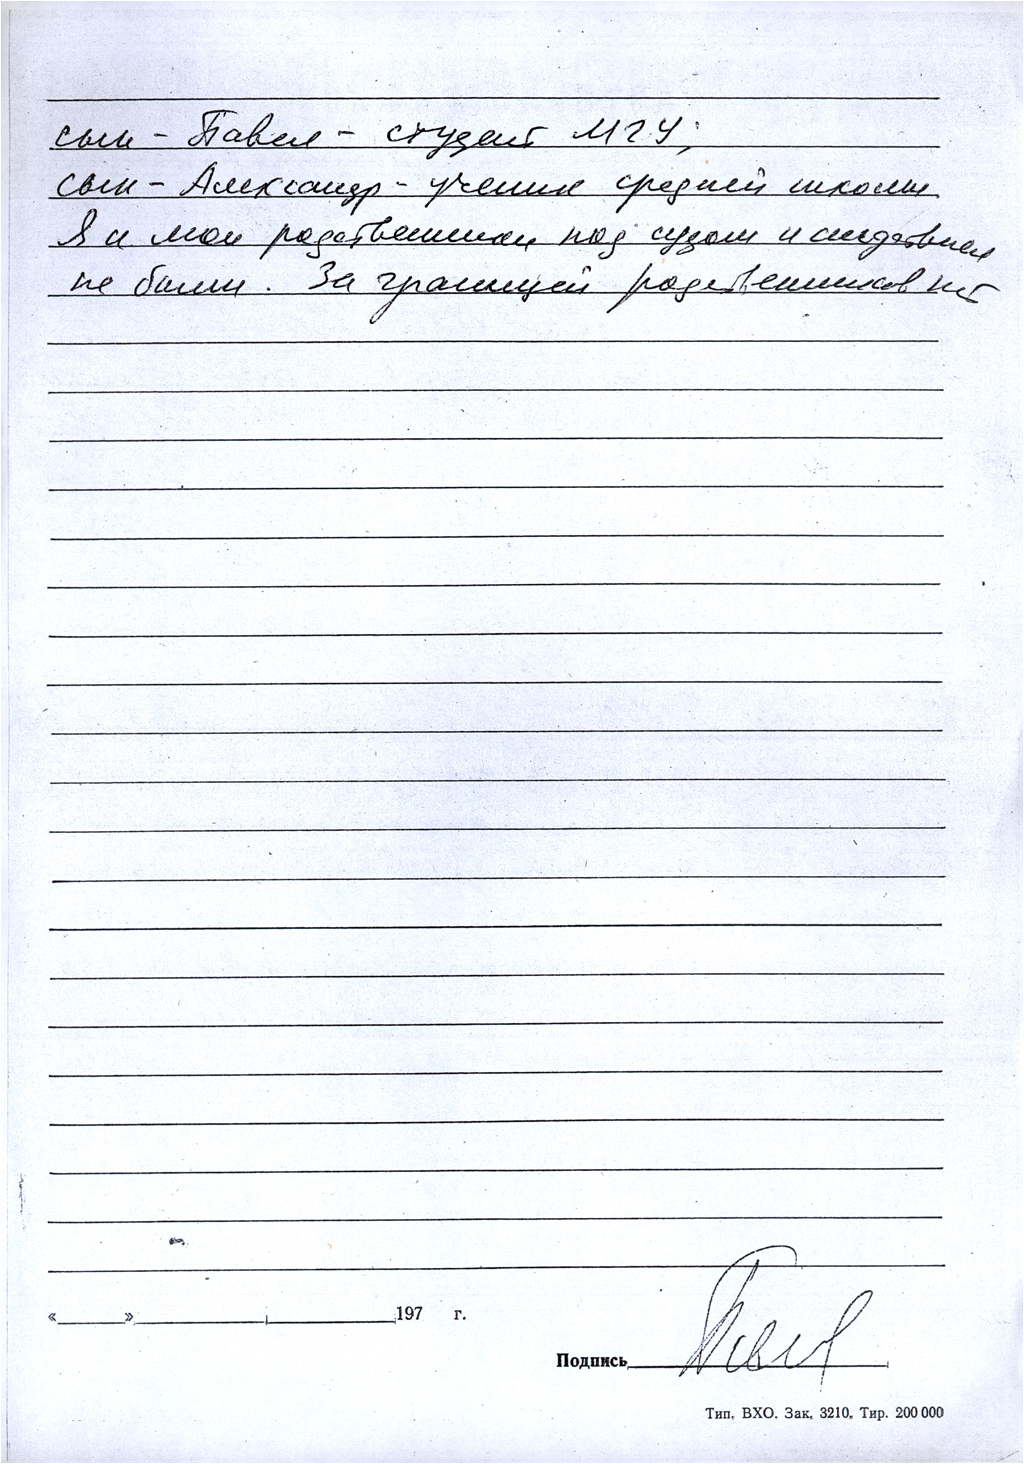 сын - Павел - студент МГУ;
сын - Александр - ученик средней школы.
Я и мои родственники под судом и следствием
не были. За границей родственников нет
« » 197 г.
Подпись
Тип. ВХО. Зак. 3210. Тир. 200 000